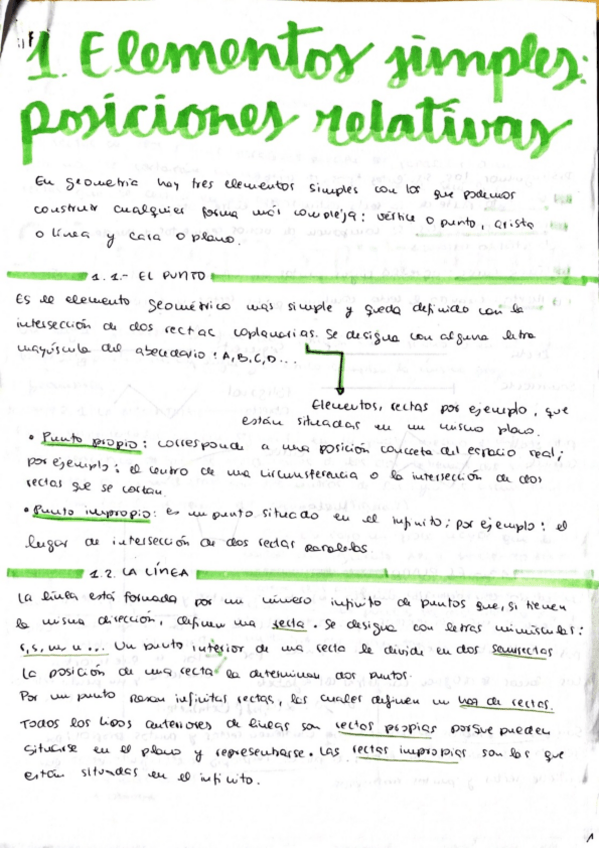 1. Elementos simples:
posiciones relativas
En geometría hay tres elementos simples con los que podemos
construir cualquier forma más compleja: vértice o punto, arista
o línea y cara o plano.
1.1.- EL PUNTO
Es el elemento geométrico más simple y queda definido con la
intersección de dos rectas coplanarias. Se designa con alguna letra
mayúscula del abecedario: A, B, C, D...
Elementos, rectas por ejemplo, que
están situadas en un mismo plano.
• Punto propio: corresponde a una posición concreta del espacio real;
por ejemplo: el centro de una circunferencia o la intersección de dos
rectas que se cortan.
• Punto impropio: es un punto situado en el infinito; por ejemplo: el
lugar de intersección de dos rectas paralelas.
1.2. LA LÍNEA
La línea está formada por un número infinito de puntos que, si tienen
la misma dirección, definen una recta. Se designa con letras minúsculas:
r, s, m, n... Un punto interior de una recta la divide en dos semirrectas
La posición de una recta la determinan dos puntos.
Por un punto pasan infinitas rectas, las cuales definen un haz de rectas.
Todos los tipos anteriores de líneas son rectas propias porque pueden
situarse en el plano y representarse. Las rectas impropias son las que
están situadas en el infinito.
1